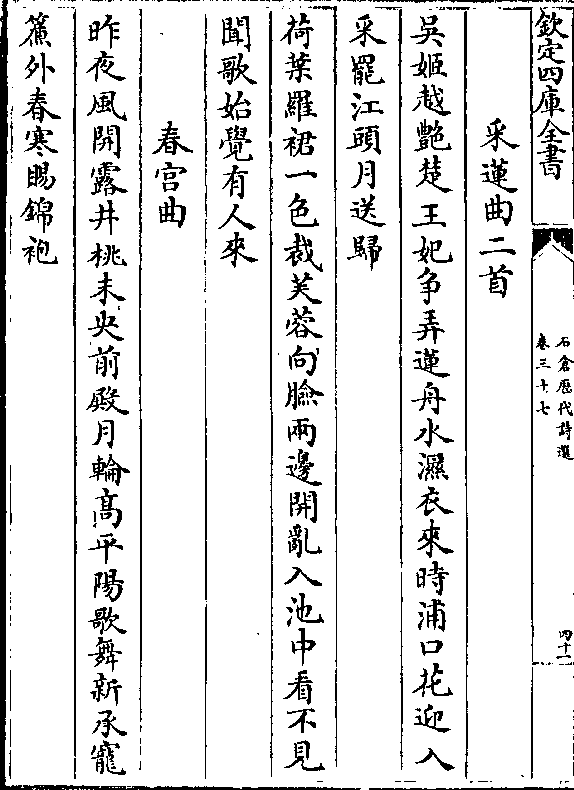 欽定四庫全書
石倉歴代詩選
卷三十七
四十一
采蓮曲二首
吳姬越艷楚王妃争弄蓮舟水濕衣來時浦口花迎入
采罷江頭月送歸
荷葉羅裙一色裁芙蓉向臉兩邊開亂入池中看不見
聞歌始覺有人來
春宫曲
昨夜風開露井桃未央前殿月輪髙平陽歌舞新承寵
簾外春寒賜錦袍